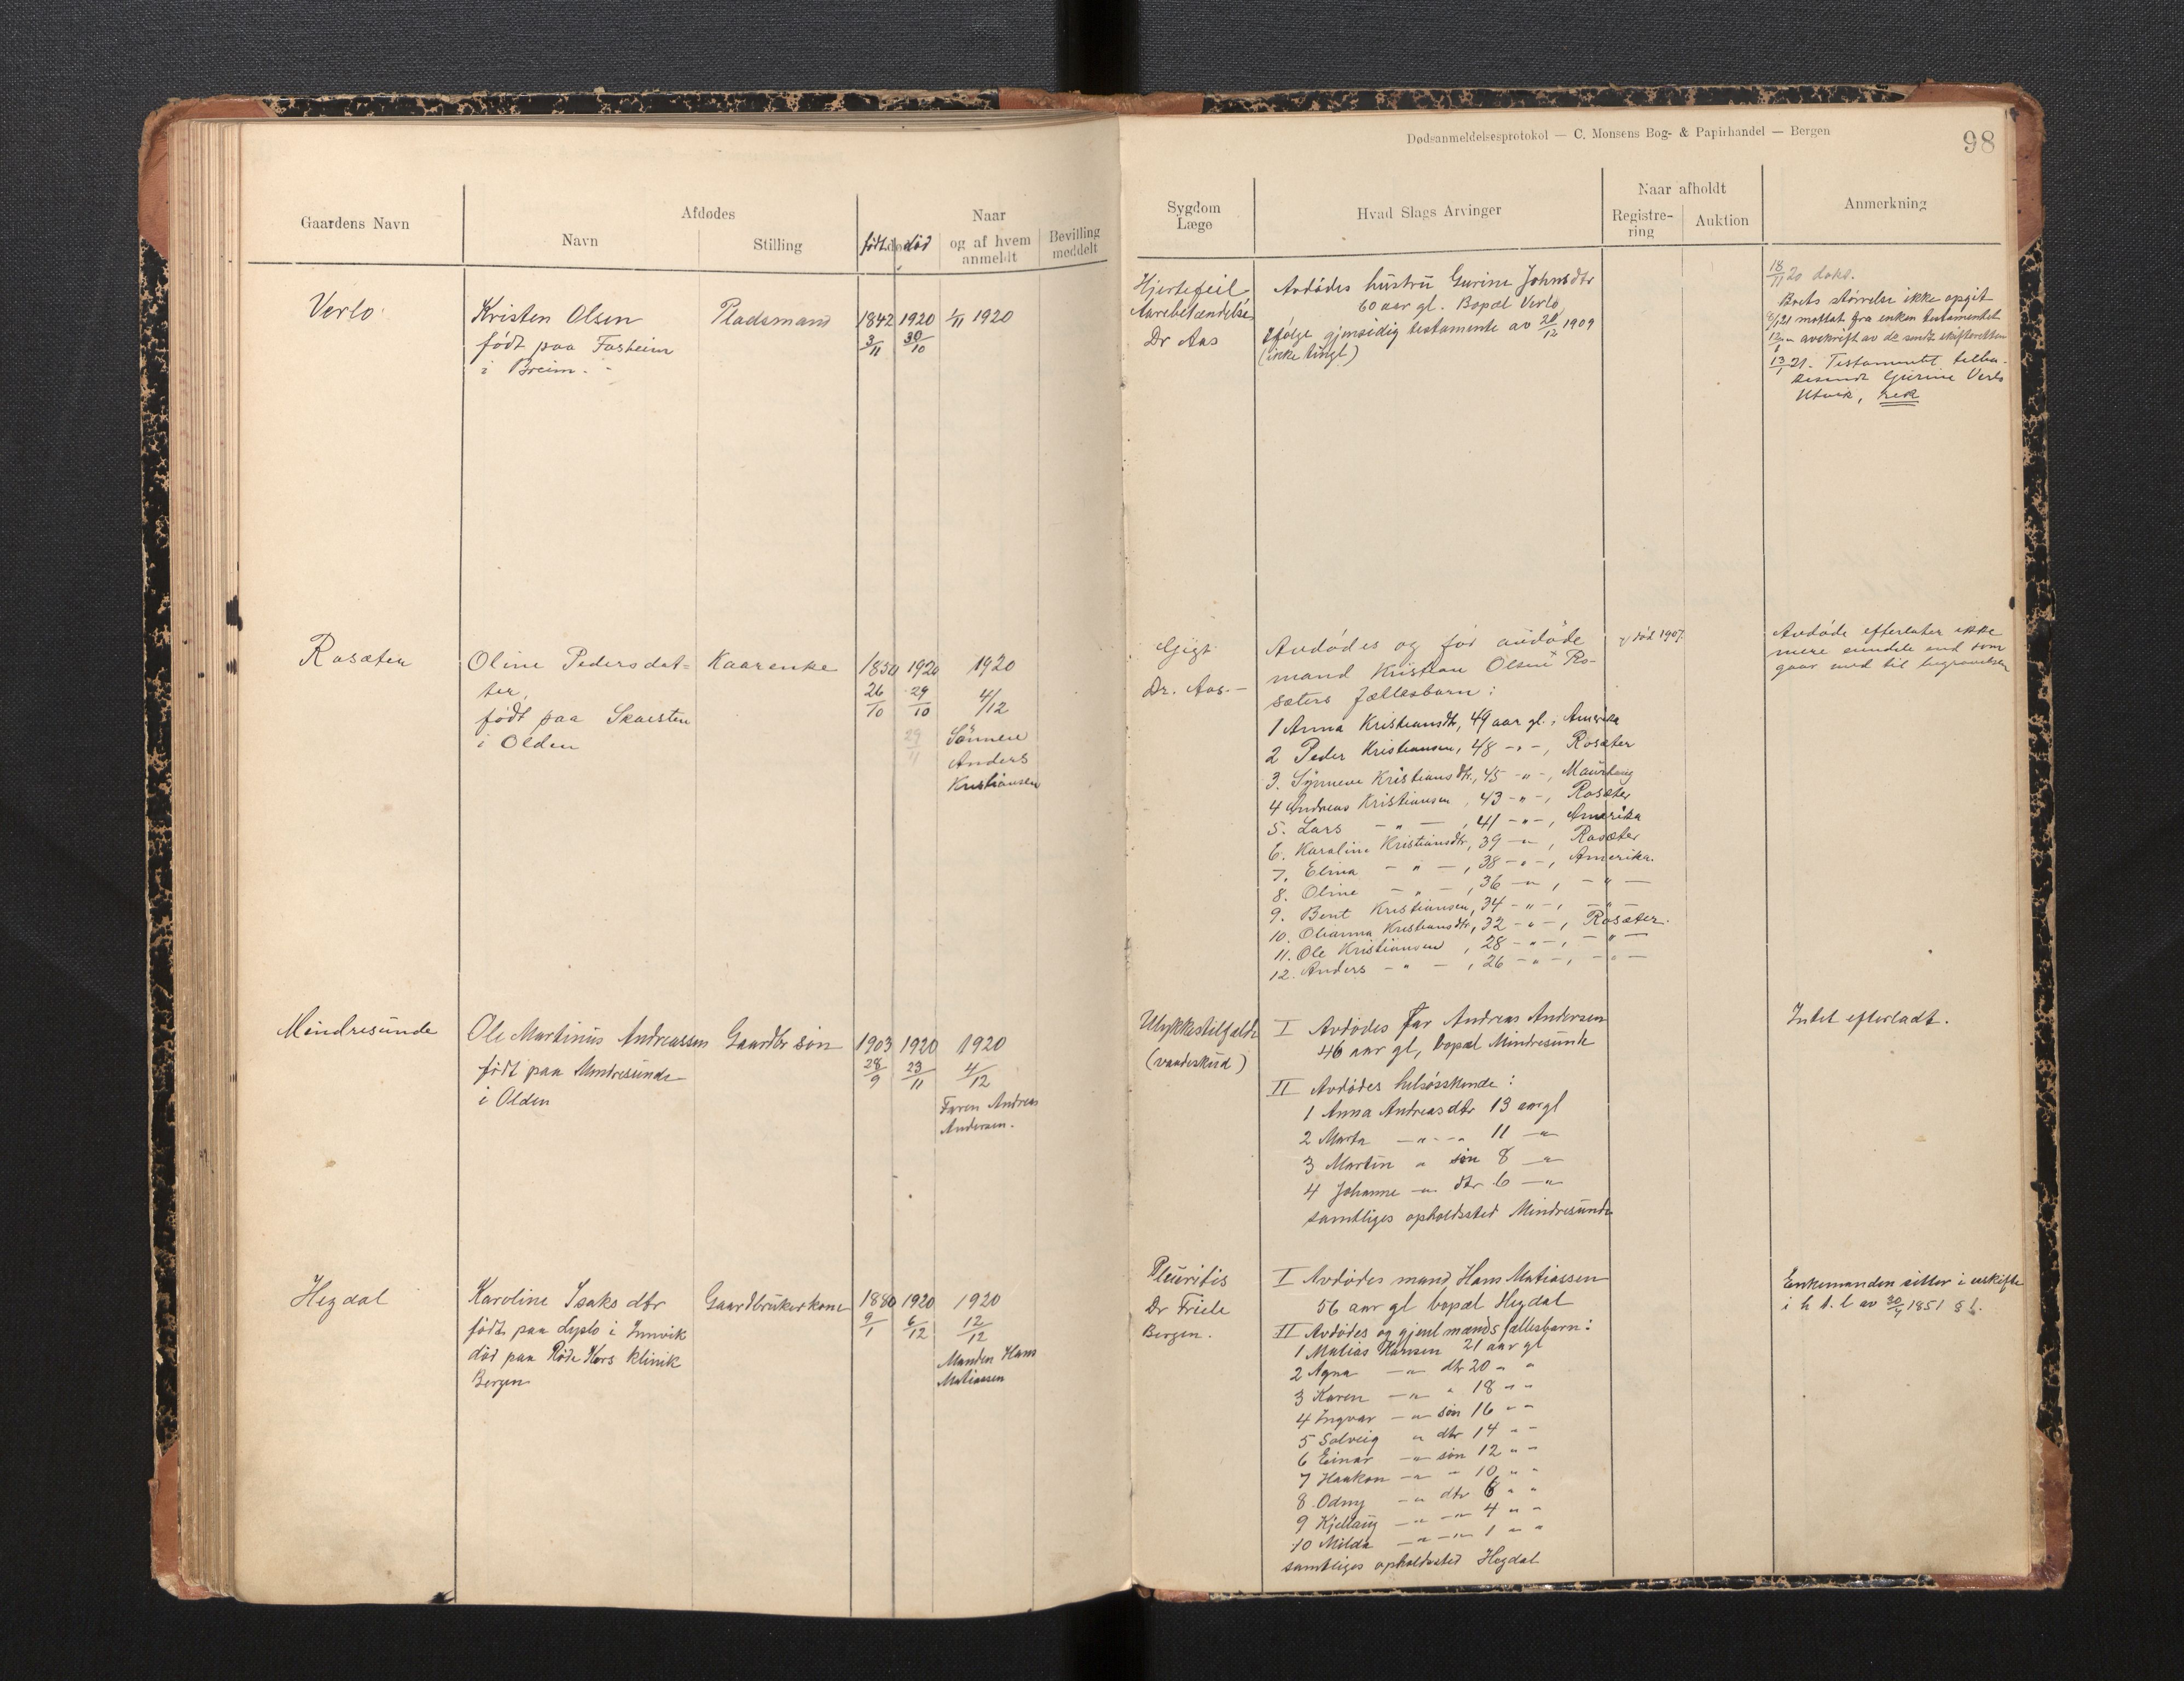 Dødsanmeldelsesprotokol — C. Monsens Bog- & Papirhandel — Bergen
98
Gaardens Navn
Afdødes
Navn
Stilling
født
død
Naar
og af hvem
anmeldt
Bevilling
meddelt
Sygdom
Læge
Hvad Slags Arvinger
Naar afholdt
Registre-
ring
Auktion
Anmerkning
Verlo
Kristen Olsen
født paa Fosheim
i Breim.
Pladsmand
1842 3/11
1920 30/10
1/11 1920
Hjertefeil
Aarebetændelse
Dr Aas
Avdødes hustru Gurine Johnsdtr
60 aar gl. Bopæl Verlo
ifølge gjensidig testamente av 28/12 1909
(ikke tingl)
18/11 20 doks.
Boets størrelse ikke opgit
8/1 21 mottat fra enken testamentet
12/1 " avskrift av do sendt skifteretten
13/1 21. Testamentet tilba-
kesendt Gurine Verlo
Utvik, rek
Rosæter
Oline Pedersdat=
ter,
født paa Skaasten
i Olden
Kaarenke
1850 26/10
1920 29/10
29/11
1920
4/12
Sønnen
Anders
Kristiansen
Gigt
Dr. Aas. —
Avdødes og før avdøde
mand Kristian Olsen Ro-
sæters fællesbarn:
død 1907.
1 Anna Kristiansdtr, 49 aar gl., Amerika
2 Peder Kristiansen, 48 -"-, Rosæter
3. Synneve Kristiansdtr., 45 -"-, Maurstaug
4 Andreas Kristiansen, 43 -"-, Rosæter
5. Lars - " -, 41 -"-, Amerika
6. Karoline Kristiansdtr, 39 -"-, Rosæter
7. Elina - " -, 38 -"-, Amerika.
8. Oline - " -, 36 -"-, - " -
9. Bent Kristiansen, 34 -"-, - " -
10. Olianna Kristiansdtr, 32 -"-, Rosæter.
11. Ole Kristiansen, 28 -"-, - " -
12. Anders - " -, 26 -"-, - " -
Avdøde efterlater ikke
mere eiendele end som
gaar med til begravelsen
Mindresunde
Ole Martinus Andreassen
født paa Mindresunde
i Olden
Gaardbr søn
1903 28/9
1920 23/11
1920
4/12
Faren Andreas
Andersen.
Ulykkestilfælde
(vaadeskud)
I Avdødes far Andreas Andersen
46 aar gl, bopæl Mindresunde
II Avdødes helsøskende:
1 Anna Andreasdtr 13 aar gl
2 Marta — " - - " 11 — "
3 Martin " søn 8 — "
4 Johanne — " dtr 6 — "
samtliges opholdssted Mindresunde
Intet efterladt.
Hegdal
Karoline Isaks dtr
født paa Lyslo i Innvik
død paa Røde Kors klinik
Bergen
Gaardbrukerkone
1880 9/1
1920 6/12
1920
12/12
Manden Hans
Matiassen
Pleuritis
Dr Friele
Bergen.
I Avdødes mand Hans Matiassen
56 aar gl bopæl Hegdal
II Avdødes og gjenl mands fællesbarn:
1 Matias Hansen 21 aar gl
2 Agna — " dtr 20 " "
3 Karen — " " 18 " "
4 Ingvar — " søn 16 " "
5 Solveig " dtr 14 " "
6 Einar — " søn 12 " "
7 Haakon — " " 10 " "
8 Odny — " dtr 6 " "
9 Kjellaug — " — " 4 " "
10 Milda — " — " 1 " "
samtliges opholdssted Hegdal
Enkemanden sitter i uskifte
i h. t. l av 30/7 1851 §